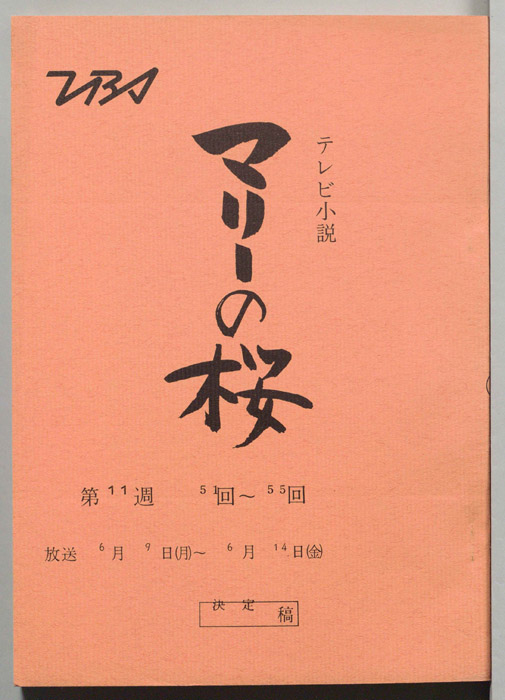 TBS
テレビ小説
マリーの桜
第11週 51回～55回
放送 6月 9日(月)～ 6月 14日(金)
決定稿